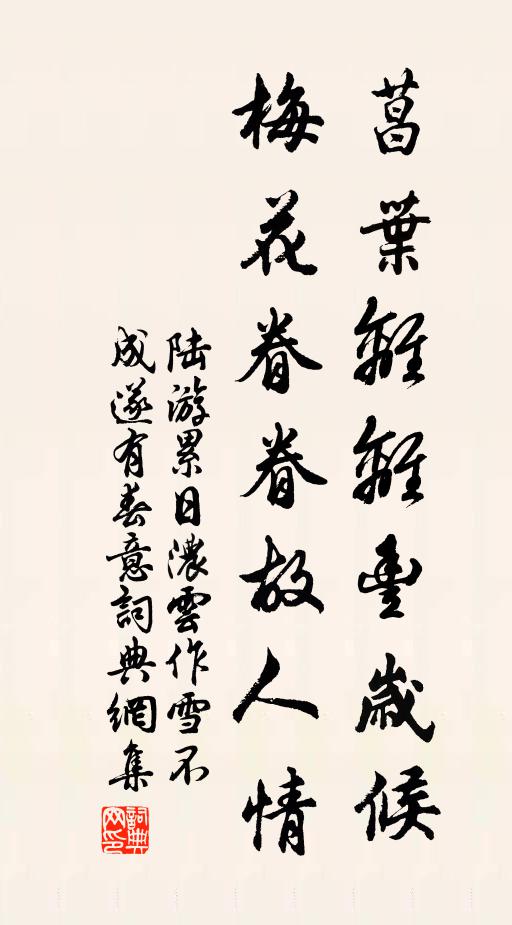 菖葉離離豐歲候
梅花眷眷故人情
陸游累日濃雲作雪不
成遂有春意詞典網集
詞典